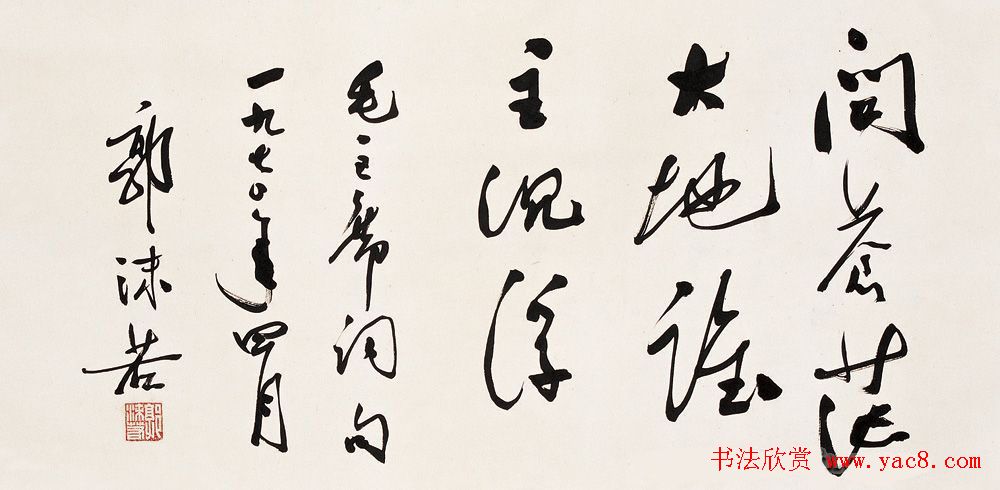 問蒼茫
大地誰
主沉浮
毛主席詞句
一九七〇年四月
郭沫若
郭沫若
书法欣赏 www.yac8.com